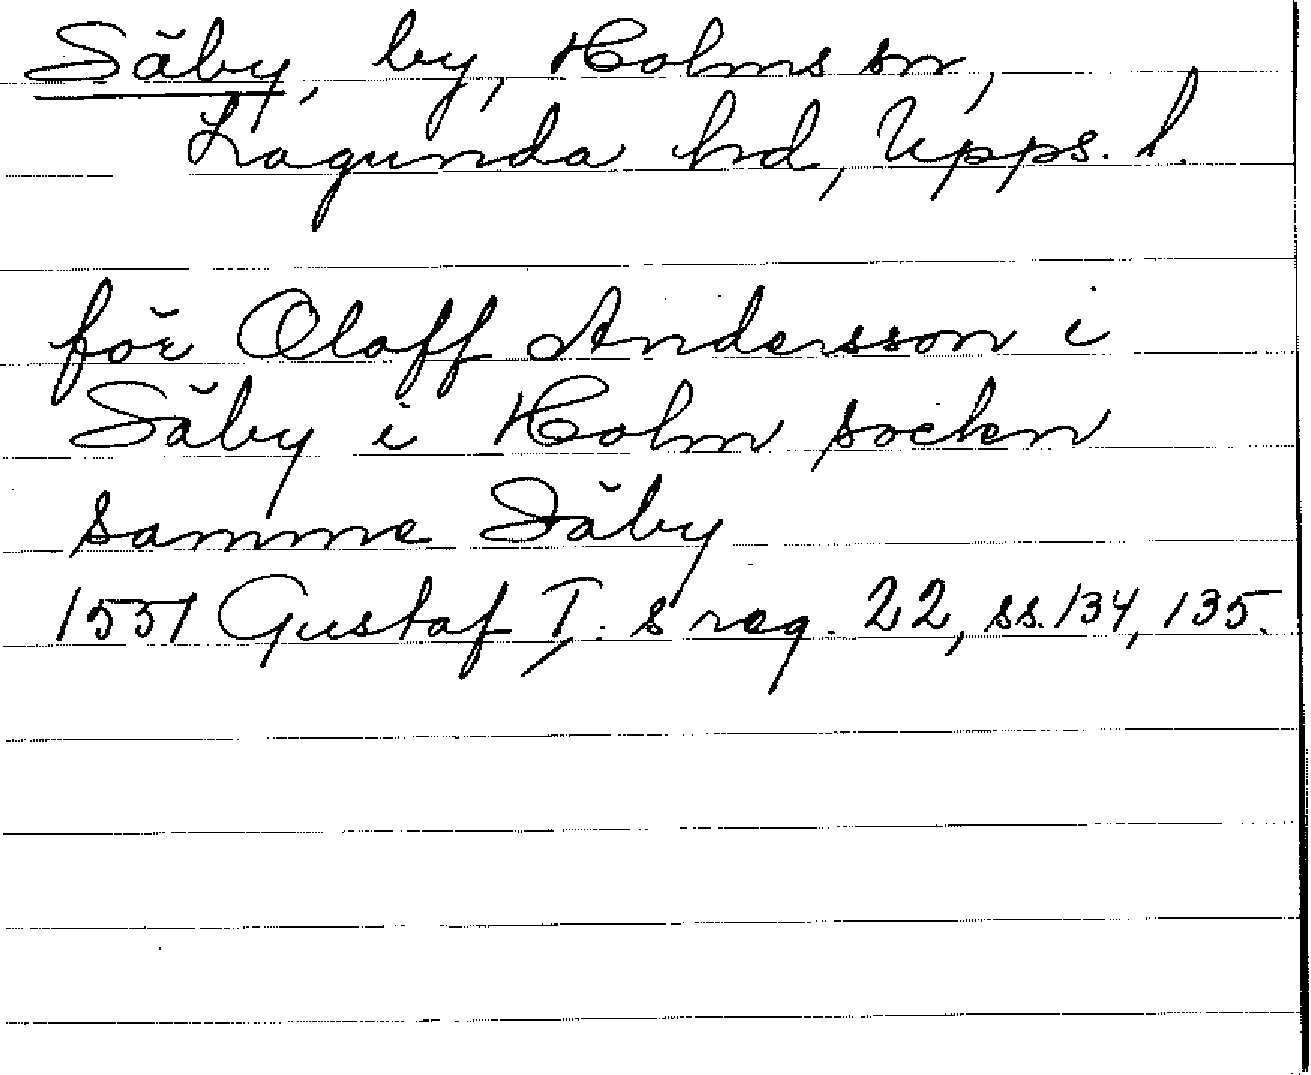 Säby, by, Holms sn,
Lagunda hd, Upps. l.
för Oloff Andersson i
Säby i Holm sockn
samme Säby
1551 Gustaf I:s reg. 22, ss. 134, 135.